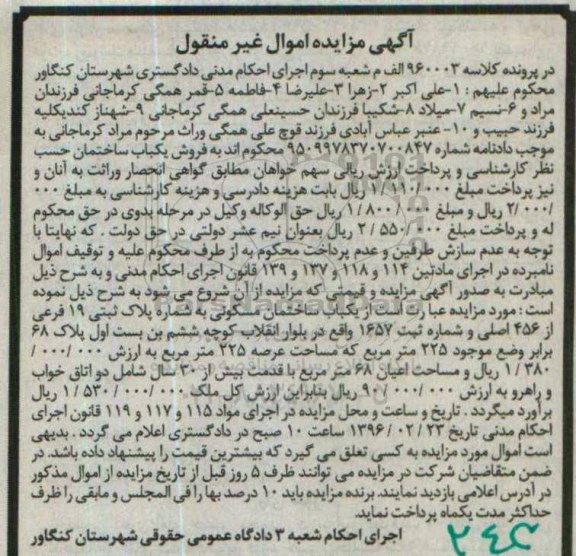 آگهی مزایده اموال غیر منقول
در پرونده کلاسه ۹۶۰۰۰۳ الف م شعبه سوم اجرای احکام مدنی دادگستری شهرستان کنگاور
محکوم علیهم : ۱-علی اکبر ۲-زهرا ۳-علیرضا ۴-فاطمه ۵-قمر همگی کرماجانی فرزندان
مراد و ۶-نسیم ۷-میلاد ۸-شکیبا فرزندان حسینعلی همگی کرماجانی ۹-شهناز کندیکلیه
فرزند حبیب و ۱۰- عنبر عباس آبادی فرزند قوچ علی همگی وراث مرحوم مراد کرماجانی به
موجب دادنامه شماره ۹۵۰۹۹۷۸۳۷۰۷۰۰۸۴۷ محکوم اند به فروش یکباب ساختمان حسب
نظر کارشناسی و پرداخت ارزش ریالی سهم خواهان مطابق گواهی انحصار وراثت به آنان و
نیز پرداخت مبلغ ۱/۱۱۰/۰۰۰ ریال بابت هزینه دادرسی و هزینه کارشناسی به مبلغ ۰۰۰
/۰۰۰ /۲ ریال و مبلغ ۰۰۰ /۸۰۰ /۱ ریال حق الوکاله وکیل در مرحله بدوی در حق محکوم
له و پرداخت مبلغ ۰۰۰ /۵۵۰ /۲ ریال بعنوان نیم عشر دولتی در حق دولت . که نهایتا با
توجه به عدم سازش طرفین و عدم پرداخت محکوم به از طرف محکوم علیه و توقیف اموال
نامبرده در اجرای مادتین ۱۱۴ و ۱۱۸ و ۱۳۷ و ۱۳۹ قانون اجرای احکام مدنی و به شرح ذیل
مبادرت به صدور آگهی مزایده و قیمتی که مزایده از آن شروع می شود به شرح ذیل نموده
است : مورد مزایده عبارت است از یکباب ساختمان مسکونی به شماره پلاک ثبتی ۱۹ فرعی
از ۴۵۶ اصلی و شماره ثبت ۱۶۵۷ واقع در بلوار انقلاب کوچه ششم بن بست اول پلاک ۶۸
برابر وضع موجود ۲۲۵ متر مربع که مساحت عرصه ۲۲۵ متر مربع به ارزش ۰۰۰/ ۰۰۰/
۳۸۰ /۱ ریال و مساحت اعیان ۶۸ متر مربع با قدمت بیش از ۳۰ سال شامل دو اتاق خواب
و راهرو به ارزش ۰۰۰/ ۰۰۰/ ۹۰ ریال بنابراین ارزش کل ملک ۰۰۰/ ۰۰۰/ ۵۳۰ /۱ ریال
برآورد میگردد . تاریخ و ساعت و محل مزایده در اجرای مواد ۱۱۵ و ۱۱۷ و ۱۱۹ قانون اجرای
احکام مدنی تاریخ ۲۳/ ۰۲/ ۱۳۹۶ ساعت ۱۰ صبح در دادگستری اعلام می گردد . بدیهی
است اموال مورد مزایده به کسی تعلق می گیرد که بیشترین قیمت را پیشنهاد داده باشد. در
ضمن متقاضیان شرکت در مزایده می توانند ظرف ۵ روز قبل از تاریخ مزایده از اموال مذکور
در آدرس اعلامی بازدید نمایند. برنده مزایده باید ۱۰ درصد بها را فی المجلس و مابقی را ظرف
حداکثر مدت یکماه پرداخت نماید.
مدرای احکام شعبه ۳ دادگاه عمومی حقوقی شهرستان کنگاور